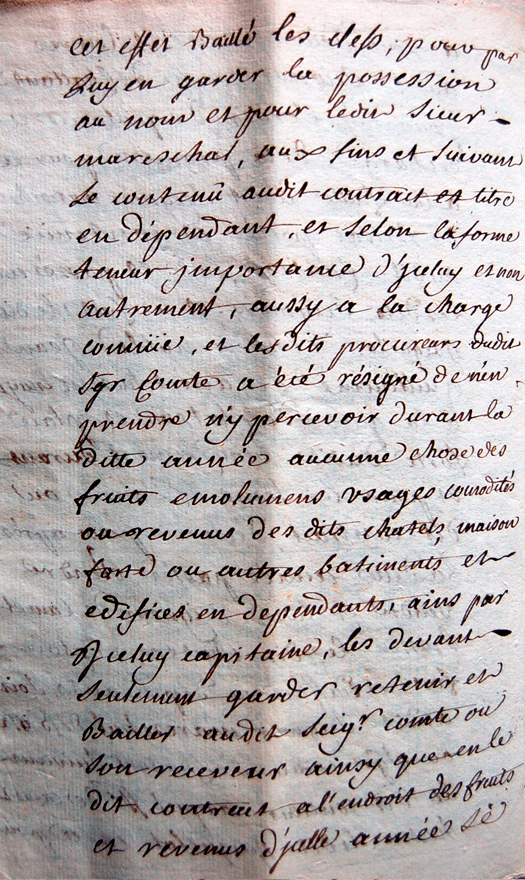 cet effet Baillé les clefs, pour par
Luy en garder la possession
au nom et pour ledit Sieur
mareschal, aux fins et suivant
Le contenû audit contract et titre
en dépendant, et selon la forme
teneur jmportance d'jceluy et non
autrement, aussy a la charge
commïse, et lesdits procureurs dudit
Sgr Comte a été résigné de n'en
prendre n'y percevoir durant la
ditte année aucunne chose des
fruits emolumens vsages comodités
ou revenus des dits chatels, maison
forte ou autres batiments et
edifices en dependants, ains par
Jceluy capitaine, les devant
seulement garder retenir et
Bailler audit Seigr comte ou
son receveur ainsy que en le
dit contract a l'endroit des fruits
et revenus d'jcelle année se